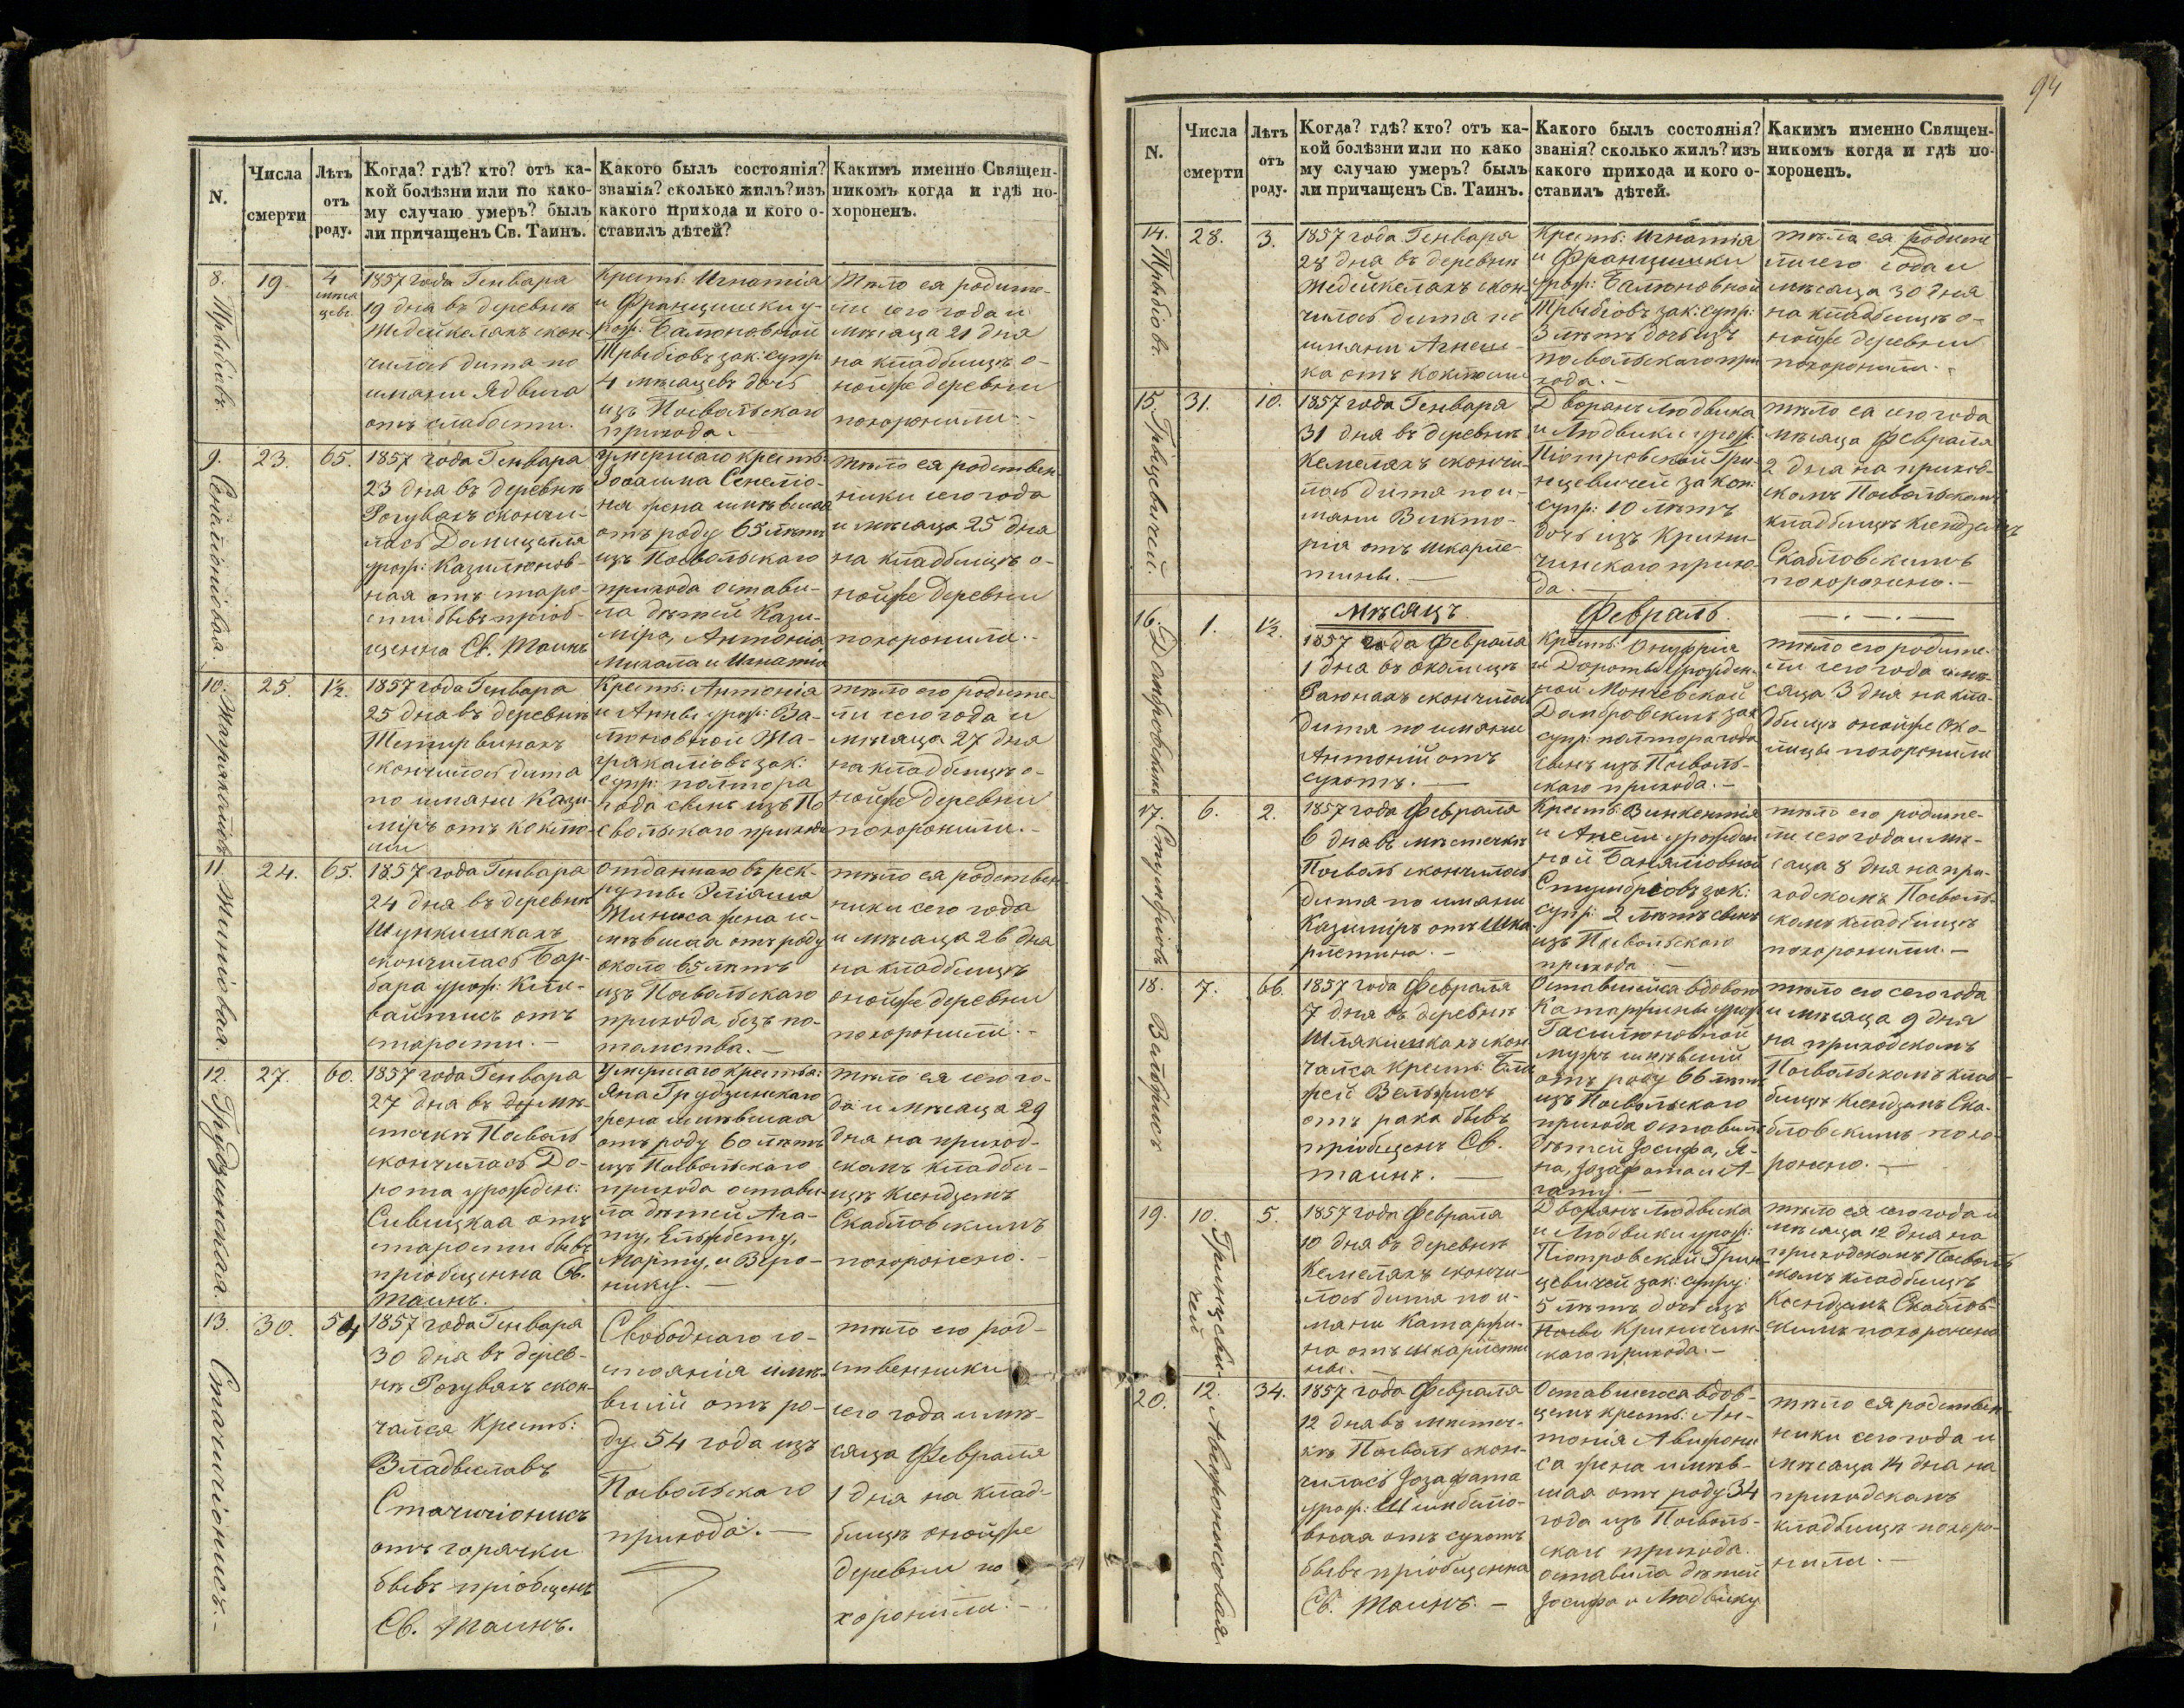 94
N.
Числа
смерти
Лѣтъ
отъ
роду.
Когда? гдѣ? кто? отъ ка-
кой болѣзни или по како-
му случаю умеръ? былъ
ли причащенъ Св. Таинъ.
Какого былъ состоянія?
званія? сколько жилъ? изъ
какого прихода и кого о-
ставилъ дѣтей?
Какимъ именно Священ-
никомъ когда и гдѣ по-
хороненъ.
8.
Трыбіовъ.
19.
4
мѣся
цевъ.
1857 года Генвара
19 дна въ деревнѣ
Жедейкеляхъ скон-
чилось дита по
имани Ядвига
отъ слабости.
Крестъ: Игнатіа
и Францишки у-
рож: Балюновной
Трыбіовъ зак: супр
4 мѣсацевъ дочь
изъ Посвольскаго
прихода.
Тѣло ея родите-
ли сего года и
мѣсаца 21 дна
на кладбищѣ о-
нойже деревни
похоронили.-
9.
23.
65.
1857 года Генвара
23 дна въ деревнѣ
Рагувахъ скончи-
лась Домицелла
урож: Казилюнов-
ная отъ старо-
сти бывъ пріоб-
щенна Св. Таинъ
умершаго крестъ:
жена имѣвшаа
отъ роду 65 лѣтъ
изъ Посвольскаго
прихода остави-
ла дѣтей Кази-
міра, Антоніа,
Михала и Игнатіа
Тѣло ея родствен
ники сего года
и мѣсаца 25 дна
на кладбищѣ о-
нойже деревни
похоронили.-
10.
25.
1½.
1857 года Генвара
25 дна въ деревнѣ
скончилось дита
по имани Кази-
міръ отъ коклю-
ши
Крестъ: Антоніа
и Анны урож: Ва-
люновной Ма-
грякаліовъ зак:
супр: полтора
года сынъ изъ По
свольскаго прихода
тѣло его родите-
ли сего года и
мѣсаца 27 дна
на кладбищѣ о-
нойже деревни
похоронили.-
11.
24.
65.
1857 года Генвара
24 дна въ деревнѣ
Шункишкахъ
скончилась Бар-
бара урож: Кли-
вайтисъ отъ
старости.-
отданнаго въ рек-
руты
жена и-
мѣвшаа отъ роду
около 65 лѣтъ
изъ Посвольскаго
прихода, безъ по-
томства.-
тѣло ея родствен-
ники сего года
и мѣсаца 26 дна
на кладбищѣ
онойже деревни
похоронили.-
12.
Грудзинская.
27.
60.
1857 года Генвара
27 дна въ мѣ-
стечкѣ Посволь
скончилась До-
рота урожден:
Сивицкаа отъ
старости бывъ
пріобщенна Св.
Таинъ.
Умершаго крестьа:
Яна Грудзинскаго
жена имѣвшаа
отъ роду 60 лѣтъ
изъ Посвольскаго
прихода остави-
ла дѣтей Ага-
ту, Ельжбету,
Марту, и Веро-
нику.-
тѣло ея сего го-
да и мѣсаца 29
дна на приход-
скомъ кладби-
щѣ Ксендземъ
Скабловскимъ
похоронено.-
13.
Стачіонисъ.-
30.
54
1857 года Генвара
30 дна въ дерев-
нѣ Рагувяхъ скон-
чалса Крестъ:
Владыславъ
отъ горячки
бывъ пріобщенъ
Св. Таинъ.
Свободнаго со-
стоянія имѣ-
вшій отъ ро-
ду 54 года изъ
Посвольскаго
прихода.-
тѣло его род-
ственники
сего года и мѣ-
саца Февраля
1 дня на клад-
бищѣ онойже
деревни по
хоронили.-
N.
Числа
смерти
Лѣтъ
отъ
роду.
Когда? гдѣ? кто? отъ ка-
кой болѣзни или по како
му случаю умеръ? былъ
ли причащенъ Св. Таинъ.
Какого былъ состоянія?
званія? сколько жилъ? изъ
какого прихода и кого о-
ставилъ дѣтей.
Какимъ именно Священ-
никомъ когда и гдѣ по-
хороненъ.
14.
Трыбіовъ.
28.
3.
1857 года Генвара
28 дна въ деревнѣ
Жедейкелахъ скон-
чилось дита по
имяни Агнеш-
ка отъ коклюши
Крестъ: Игнатія
и Францишки
урож: Балюновной
Трыбіовъ зак: супр:
3 лѣтъ дочь изъ
посвольскаго при
хода.-
тѣла ея родите
ли сего года и
мѣсаца 30 дня
на кладбищѣ о-
нойже деревни
похоронили.-
15.
Гринцевичей.
31.
10.
1857 года Генвара
31 дня въ деревнѣ
Кемеляхъ скончи-
лось дитя по и-
мяни Викто-
ріа отъ шкарле-
тины.-
Дворанъ Людвика
и Людвики урож:
Піотровской Гри-
нцевичей закон:
супр: 10 лѣтъ
дочь изъ Крини-
чинскаго прихо-
да.-
тѣло ея сего года
мѣсаца Февраля
2 дна на приход-
скомъ Посвольскомъ
кладбищѣ Ксендземъ
Скабловскимъ
похоронено.-
Мѣсяцъ
Февраль.
16.
Домбровскихъ
1.
1½.
1857 года Февраля
1 дна въ околицѣ
Раюнахъ скончилось
дитя по имяни
Антоній отъ
сухотъ.-
Крестъ: Онуфріа
и Дороты урожден-
ной Мончевской
Домбровскихъ зак
супр: полтора года
сынъ изъ Посволь-
скаго прихода.-
тѣло его родите-
ли сего года и мѣ-
сяца 3 дня на кла-
дбищѣ онойже око-
лицы похоронили
17.
Стумбріовъ
6.
2.
1857 года Февраля
6 дна въ мѣстечкѣ
Посволь скончилось
дитя по имяни
Казиміръ отъ шка-
рлетины.-
Крестъ: Винкентіа
и Анели урожден
ной Баналіовной
Стумбріовъ зак:
супр: 2 лѣтъ сынъ
изъ Посвольскаго
прихода.-
тѣло его родите-
ли сего года и мѣ-
саца 8 дня на при-
ходскомъ Посволь-
скомъ кладбищѣ
похоронили.-
18.
7.
66.
1857 года Февраля
7 дня въ деревнѣ
Шлякишкахъ скон
чалса Крестъ:
отъ рака бывъ
пріобщенъ Св.
таинъ.-
Оставшейса вдовою
Катаржины урож
мужъ имѣвшій
отъ роду 66 лѣтъ
изъ Посвольскаго
прихода оставилъ
дѣтей Іосифа, Я-
на, Іозафата и А-
гату.-
тѣло его сего года
и мѣсяца 9 дня
на приходскомъ
Посвольскомъ клад-
бищѣ Ксендземъ Ска-
бловскимъ похо-
ронено.-
19.
Гринцеви-
чей
10.
5.
1857 года Февраля
10 дня въ деревнѣ
Кемеляхъ скончи-
лось дитя по и-
мяни Катаржи-
на отъ шкарлети
ны.-
Дворянъ Людвика
и Людвики урож:
Піотровской Грин-
цевичей зак: супру:
5 лѣтъ дочь изъ
Посво Криничин-
скаго прихода.-
тѣло ея сего года и
мѣсаца 12 дня на
приходскомъ Посволь
скомъ кладбищѣ
Ксендземъ Скаблов-
скимъ похоронено
20.
12.
34.
1857 года Февраля
12 дна въ мѣстеч-
кѣ Посволь скон-
чилась Іозафата
урож: Шимбеліо-
вная отъ сухотъ
бывъ пріобщенна
Св. Таинъ.-
Оставшегоса вдов-
цемъ крестъ: Ан-
тонія Авижони
са жена имѣв-
шая отъ роду 34
года изъ Посволь-
скаго прихода
оставила дѣтей
Іосифа и Людвику
тѣло ея родствен-
ники сего года и
мѣсаца 14 дна на
приходскомъ
кладбищѣ похоро-
нили.-